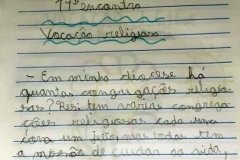 11º encontro
Vocação religiosa
- Em minha diocese há
quantas congregações religio-
sas? Res: tem várias congrega-
ções religiosas cada uma
com um jeito mas todas tem
a missão de cuidar da vida,